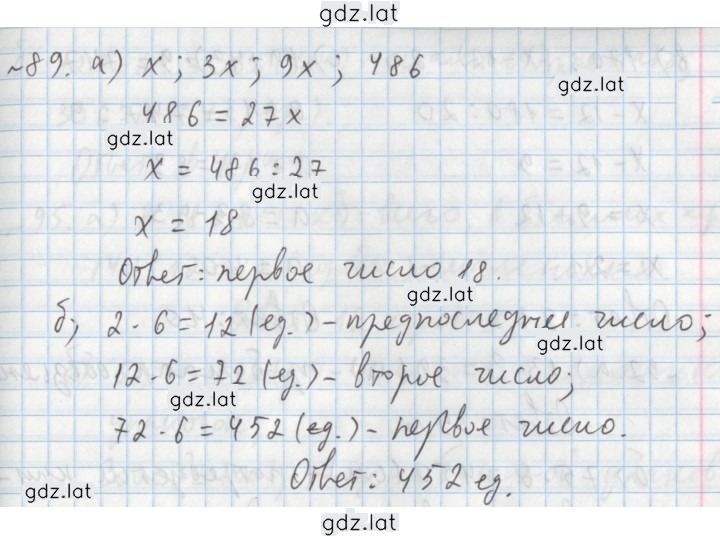 gdz.lat
№89. а) x; 3x; 9x; 486
gdz.lat
486 = 27x
gdz.lat
x = 486 : 27
gdz.lat
x = 18
Ответ: первое число 18.
gdz.lat
б) 2 · 6 = 12 (ед.) – предпоследнее число;
gdz.lat
12 · 6 = 72 (ед.) – второе число;
gdz.lat
72 · 6 = 452 (ед.) – первое число.
Ответ: 452 ед.
gdz.lat
gdz.lat